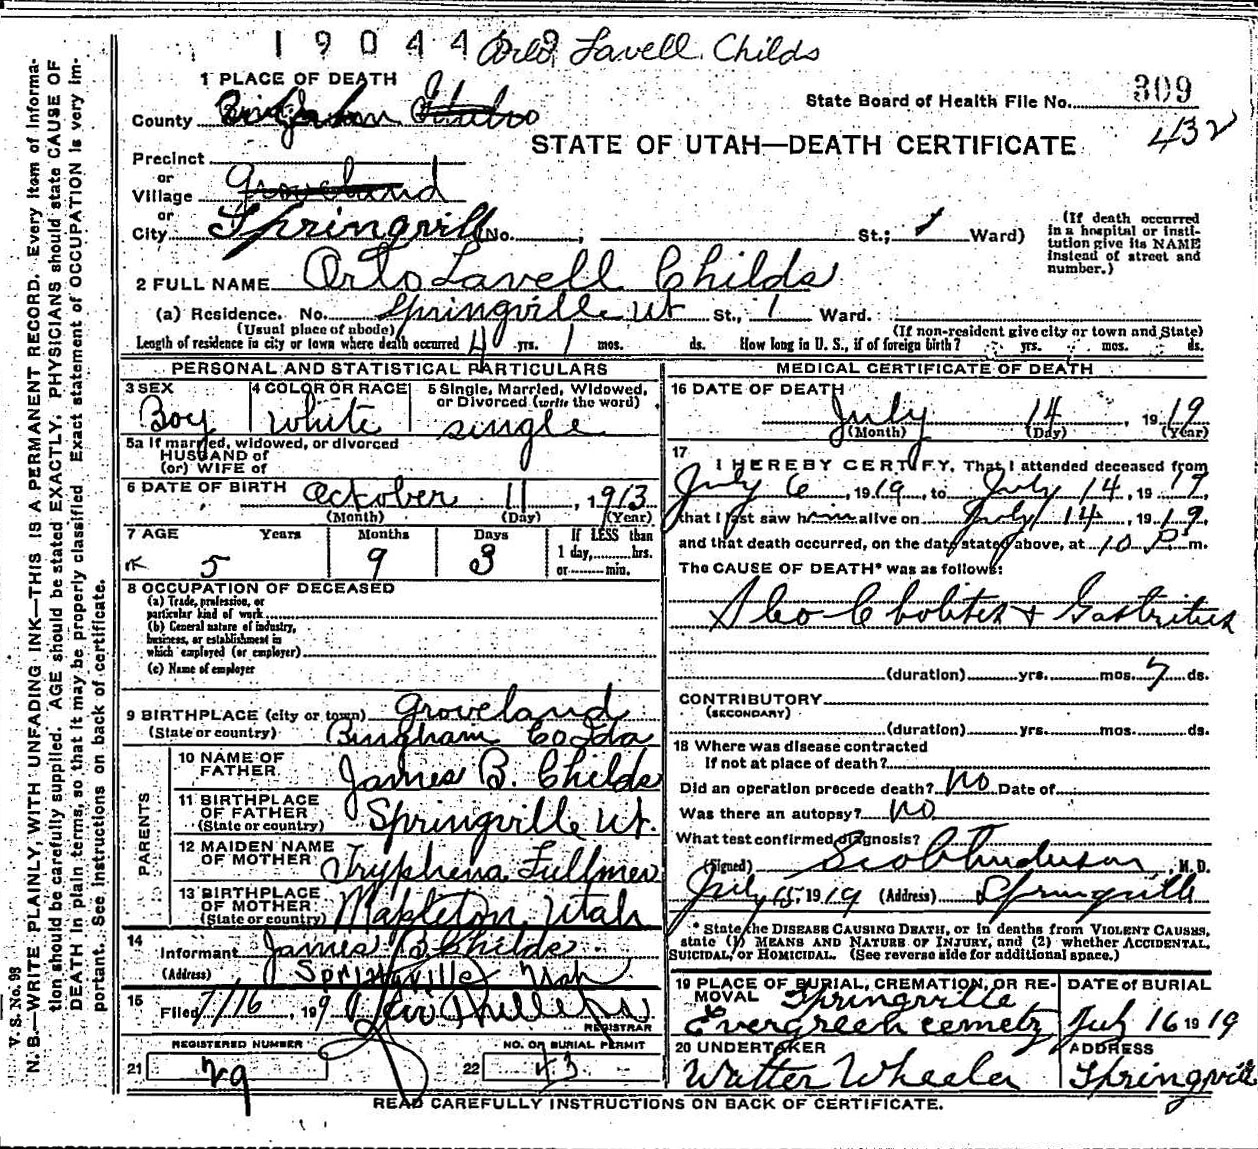 190449 Arlo Lavell Childs
1 PLACE OF DEATH
State Board of Health File No. 309
County Bingham
432
STATE OF UTAH—DEATH CERTIFICATE
Precinct
or
Village Groveland
or
City Springvill No. , St.; 1 Ward)
(If death occurred
in a hospital or insti-
tution give its NAME
instead of street and
number.)
2 FULL NAME Orlo Lavell Childs
(a) Residence. No. Springville Ut St., 1 Ward.
(Usual place of abode)
(If non-resident give city or town and State)
Length of residence in city or town where death occurred 4 yrs. 1 mos. ds. How long in U. S., if of foreign birth? yrs. mos. ds.
PERSONAL AND STATISTICAL PARTICULARS
3 SEX
Boy
4 COLOR OR RACE
White
5 Single, Married, Widowed,
or Divorced (write the word)
single
5a If married, widowed, or divorced
HUSBAND of
(or) WIFE of
6 DATE OF BIRTH October 11, 1913
(Month) (Day) (Year)
7 AGE Years Months Days If LESS than
1 day, hrs.
or min.
5 9 3
8 OCCUPATION OF DECEASED
(a) Trade, profession, or
particular kind of work
(b) General nature of industry,
business, or establishment in
which employed (or employer)
(c) Name of employer
9 BIRTHPLACE (city or town) Groveland
(State or country) Bingham Co Ida
PARENTS
10 NAME OF
FATHER James B. Childs
11 BIRTHPLACE
OF FATHER
(State or country) Springville Ut.
12 MAIDEN NAME
OF MOTHER Tryphena Fullmer
13 BIRTHPLACE
OF MOTHER
(State or country) Mapleton Utah
14 Informant James B Childs
(Address) Springville Utah
15 Filed 7/16, 199
REGISTRAR
REGISTERED NUMBER
21 29
NO. OR BURIAL PERMIT
22 43
MEDICAL CERTIFICATE OF DEATH
16 DATE OF DEATH
July 14 1919
(Month) (Day) (Year)
17
I HEREBY CERTIFY, That I attended deceased from
July 6, 1919, to July 14, 1919,
that I last saw him alive on July 14, 1919,
and that death occurred, on the date stated above, at 10 P m.
The CAUSE OF DEATH* was as follows:
Ileo Cholitis + Gastritis
(duration) yrs. mos. 7 ds.
CONTRIBUTORY
(SECONDARY)
(duration) yrs. mos. ds.
18 Where was disease contracted
If not at place of death?
Did an operation precede death? No Date of
Was there an autopsy? No
What test confirmed diagnosis?
(Signed) Anderson M. D.
July 15, 1919 (Address) Springville
* State the DISEASE CAUSING DEATH, or in deaths from VIOLENT CAUSES,
state (1) MEANS AND NATURE OF INJURY, and (2) whether ACCIDENTAL,
SUICIDAL, or HOMICIDAL. (See reverse side for additional space.)
19 PLACE OF BURIAL, CREMATION, OR RE-
MOVAL Springville
Evergreen cemetz
DATE of BURIAL
July 16 1919
20 UNDERTAKER
Walter Wheeler
ADDRESS
Springville
READ CAREFULLY INSTRUCTIONS ON BACK OF CERTIFICATE.
V. S. No. 98
N. B.—WRITE PLAINLY, WITH UNFADING INK—THIS IS A PERMANENT RECORD. Every item of informa-
tion should be carefully supplied. AGE should be stated EXACTLY. PHYSICIANS should state CAUSE OF
DEATH in plain terms, so that it may be properly classified. Exact statement of OCCUPATION is very im-
portant. See instructions on back of certificate.